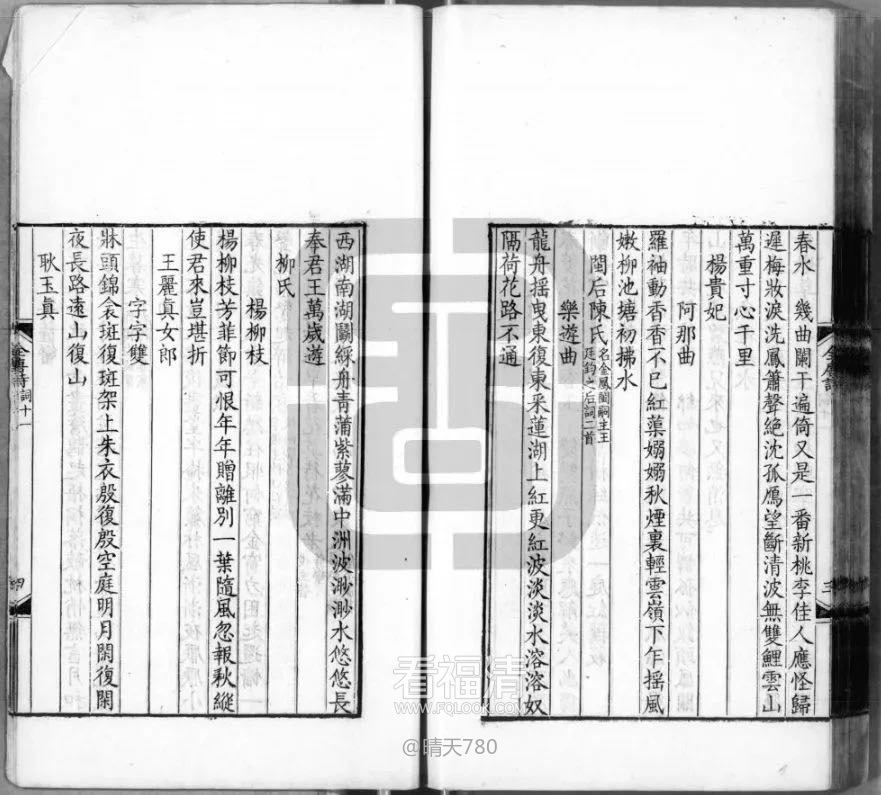 春水　幾曲闌干遍倚又是一番新桃李佳人應怪歸
遲梅妝淚洗鳳簫聲絕沈孤鴈望斷清波無雙鯉雲山
萬重寸心千里
楊貴妃
阿那曲
羅袖動香香不已紅蕖嫋嫋秋煙裏輕雲嶺下乍搖風
嫩柳池塘初拂水
閩后陳氏 名金鳳閩嗣主王
延鈞之后詞二首
樂遊曲
龍舟搖曳東復東采蓮湖上紅更紅波淡淡水溶溶奴
隔荷花路不通
西湖南湖鬭綵舟青蒲紫蓼滿中洲波渺渺水悠悠長
奉君王萬歲遊
柳氏
楊柳枝
楊柳枝芳菲節可恨年年贈離別一葉隨風忽報秋縱
使君來豈堪折
王麗眞女郎
字字雙
牀頭錦衾斑復斑架上朱衣殷復殷空庭明月閑復閑
夜長路遠山復山
耿玉眞
全唐詩
三
全唐詩 詞十一
四
看福清
WWW.FQLOOK.COM
@晴天780